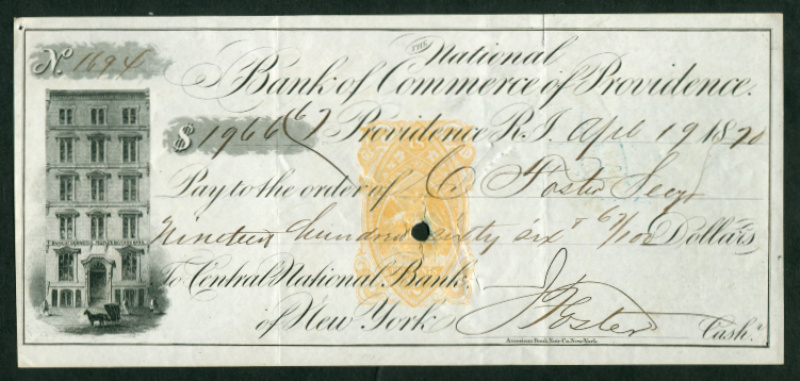 No 1694
THE National
Bank of Commerce of Providence.
$ 1966 67 Providence R.I. Apl 19 1870
Pay to the order of C Foster Secy
Nineteen hundred sixty six + 67/100 Dollars
To Central National Bank
of New York J Foster Cash.r
American Bank Note Co. New York.